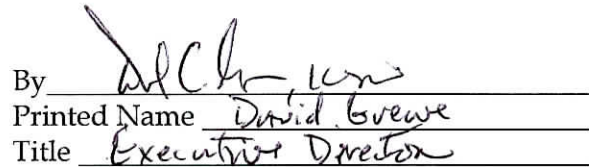 By
Printed Name David Grewe
Title Executive Director